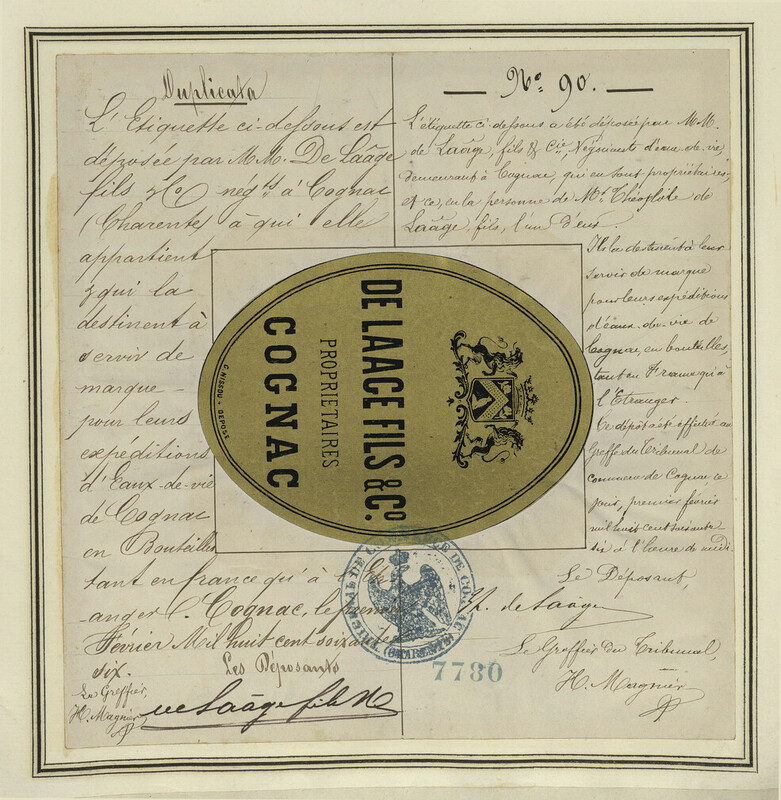 Duplicata
L'Etiquette ci-dessous est
déposée par MM. De Laâge
fils & Co négts à Cognac
(Charente) à qui elle
appartient
& qui la
destinent à
servir de
marque
pour leurs
expéditions
d'Eaux-de-vie
de Cognac
en Bouteilles
tant en france qu'à l'Etr
anger. Cognac, le premier
Février Mil huit cent soixante
six.
Les Déposants
Le Greffier,
H. Magnier
de Laâge fils & Co
No. 90.
L'étiquette ci-dessous a été déposée par MM.
de Laâge, fils & Cie, Négociants d'eau-de-vie
demeurant à Cognac, qui en sont propriétaires,
et ce, en la personne de Mr. Théophile de
Laâge, fils, l'un d'eux.
Ils la destinent à leur
servir de marque
pour leurs expéditions
d'eaux-de-vie de
Cognac, en bouteilles,
tant en France qu'à
l'Etranger.
Ce dépôt a été effectué au
Greffe du Tribunal de
commerce de Cognac, ce
jour, premier février
mil huit cent soixante
six à l'heure de midi.
Le Déposant,
Th. de Laâge
Le Greffier du Tribunal,
H. Magnier
DE LAAGE FILS & Co.
PROPRIETAIRES
COGNAC
C. NISSOU . DEPOSE
TRIBUNAL DE COMMERCE DE COGNAC
(CHARENTE)
7780